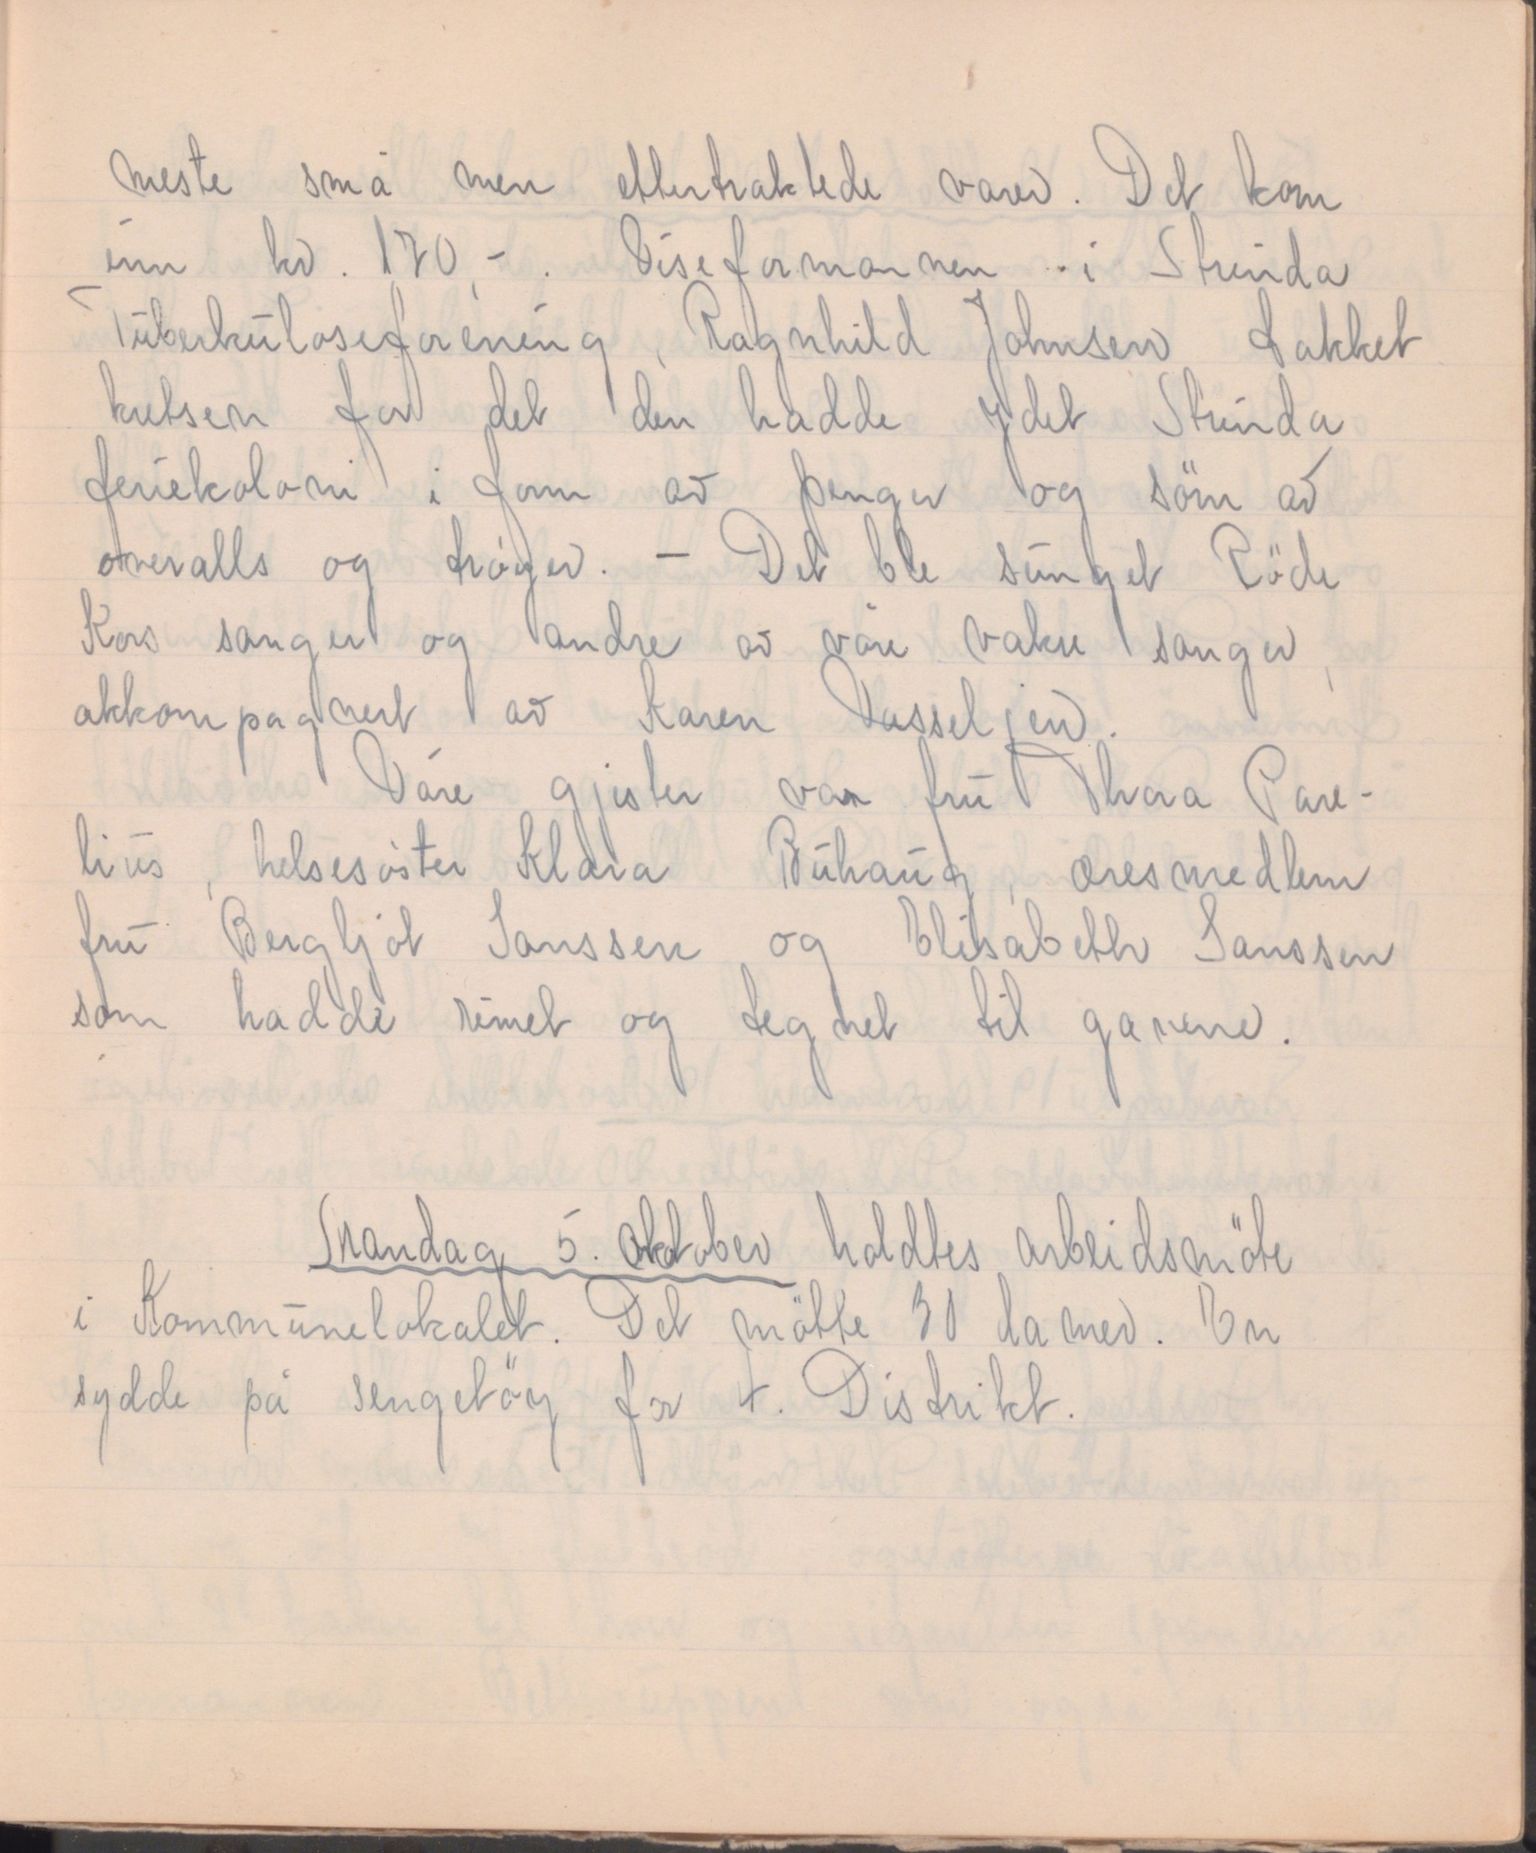 meste små men ettertraktede varer. Det kom
inn kr. 170,-. Viseformannen i Strinda
Tuberkuloseforening, Ragnhild Johnsen takket
kretsen for det den hadde ydet Strinda
feriekoloni i form av penger og söm av
overalls og tröyer. - Det ble sunget Röde
Kors sanger og andre av våre vakre sanger,
akkompagnert av Karen Vasseljen.
Våre gjester var fru Thora Pare-
lius, helsesöster Klara Buhaug, æresmedlem
fru Bergljot Janssen og Elisabeth Janssen
som hadde rimet og tegnet til gavene.
Mandag 5. oktober holdtes arbeidsmöte
i Kommunelokalet. Det mötte 30 damer. En
sydde på sengetöy for 4. Distrikt.